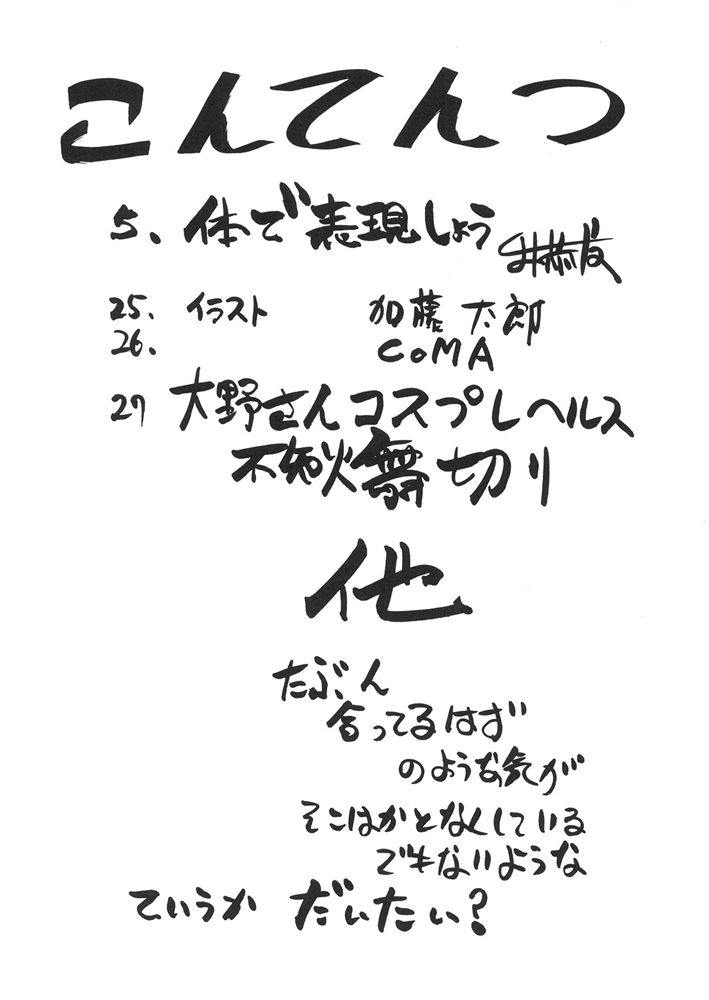 こんてんつ
5、体で表現しよう
25. イラスト 加藤太郎
26. CoMA
27 大野さんコスプレヘルス
不知火舞切り
他
たぶん
合ってるはず
のような気が
そこはかとなくしている
でもないような
ていうか だいたい?